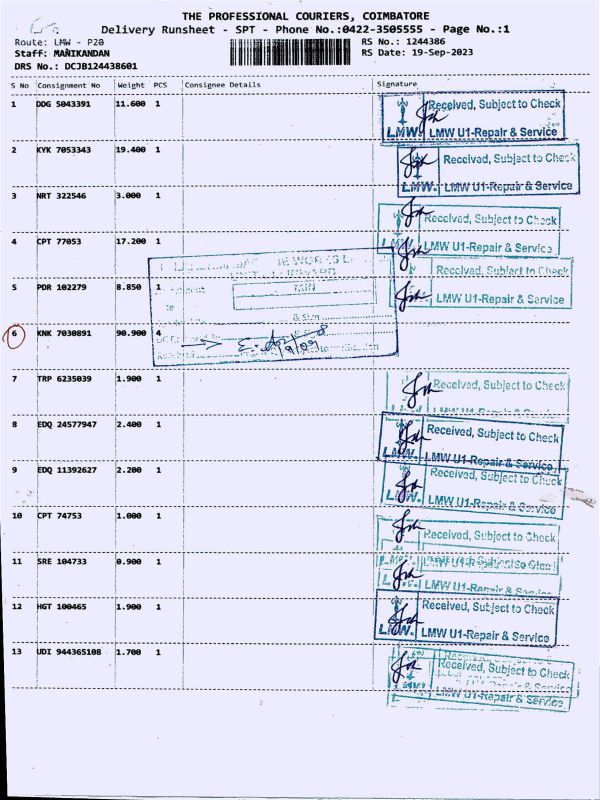 THE PROFESSIONAL COURIERS, COIMBATORE
Delivery Runsheet - SPT - Phone No.:0422-3505555 - Page No.:1
Route: LMW - P20
RS No.: 1244386
Staff: MANIKANDAN
RS Date: 19-Sep-2023
DRS No.: DCJB124438601
S No Consignment No Weight PCS Consignee Details Signature
1 DDG 5043391 11.600 1
Received, Subject to Check
LMW. LMW U1-Repair & Service
2 KYK 7053343 19.400 1
Received, Subject to Check
LMW. LMW U1-Repair & Service
3 NRT 322546 3.000 1
Received, Subject to Check
4 CPT 77053 17.200 1
LMW U1-Repair & Service
Received, Subject to Check
5 PDR 102279 8.850 1
MIN
LMW U1-Repair & Service
6 KNK 7030891 90.900 4
7 TRP 6235039 1.900 1
Received, Subject to Check
LMW U1-Repair & Service
8 EDQ 24577947 2.400 1
Received, Subject to Check
LMW. LMW U1-Repair & Service
9 EDQ 11392627 2.200 1
Received, Subject to Check
LMW. LMW U1-Repair & Service
10 CPT 74753 1.000 1
Received, Subject to Check
11 SRE 104733 0.900 1
LMW U1-Repair & Service
12 HGT 100465 1.900 1
Received, Subject to Check
LMW. LMW U1-Repair & Service
13 UDI 944365108 1.700 1
Received, Subject to Check
LMW U1-Repair & Service